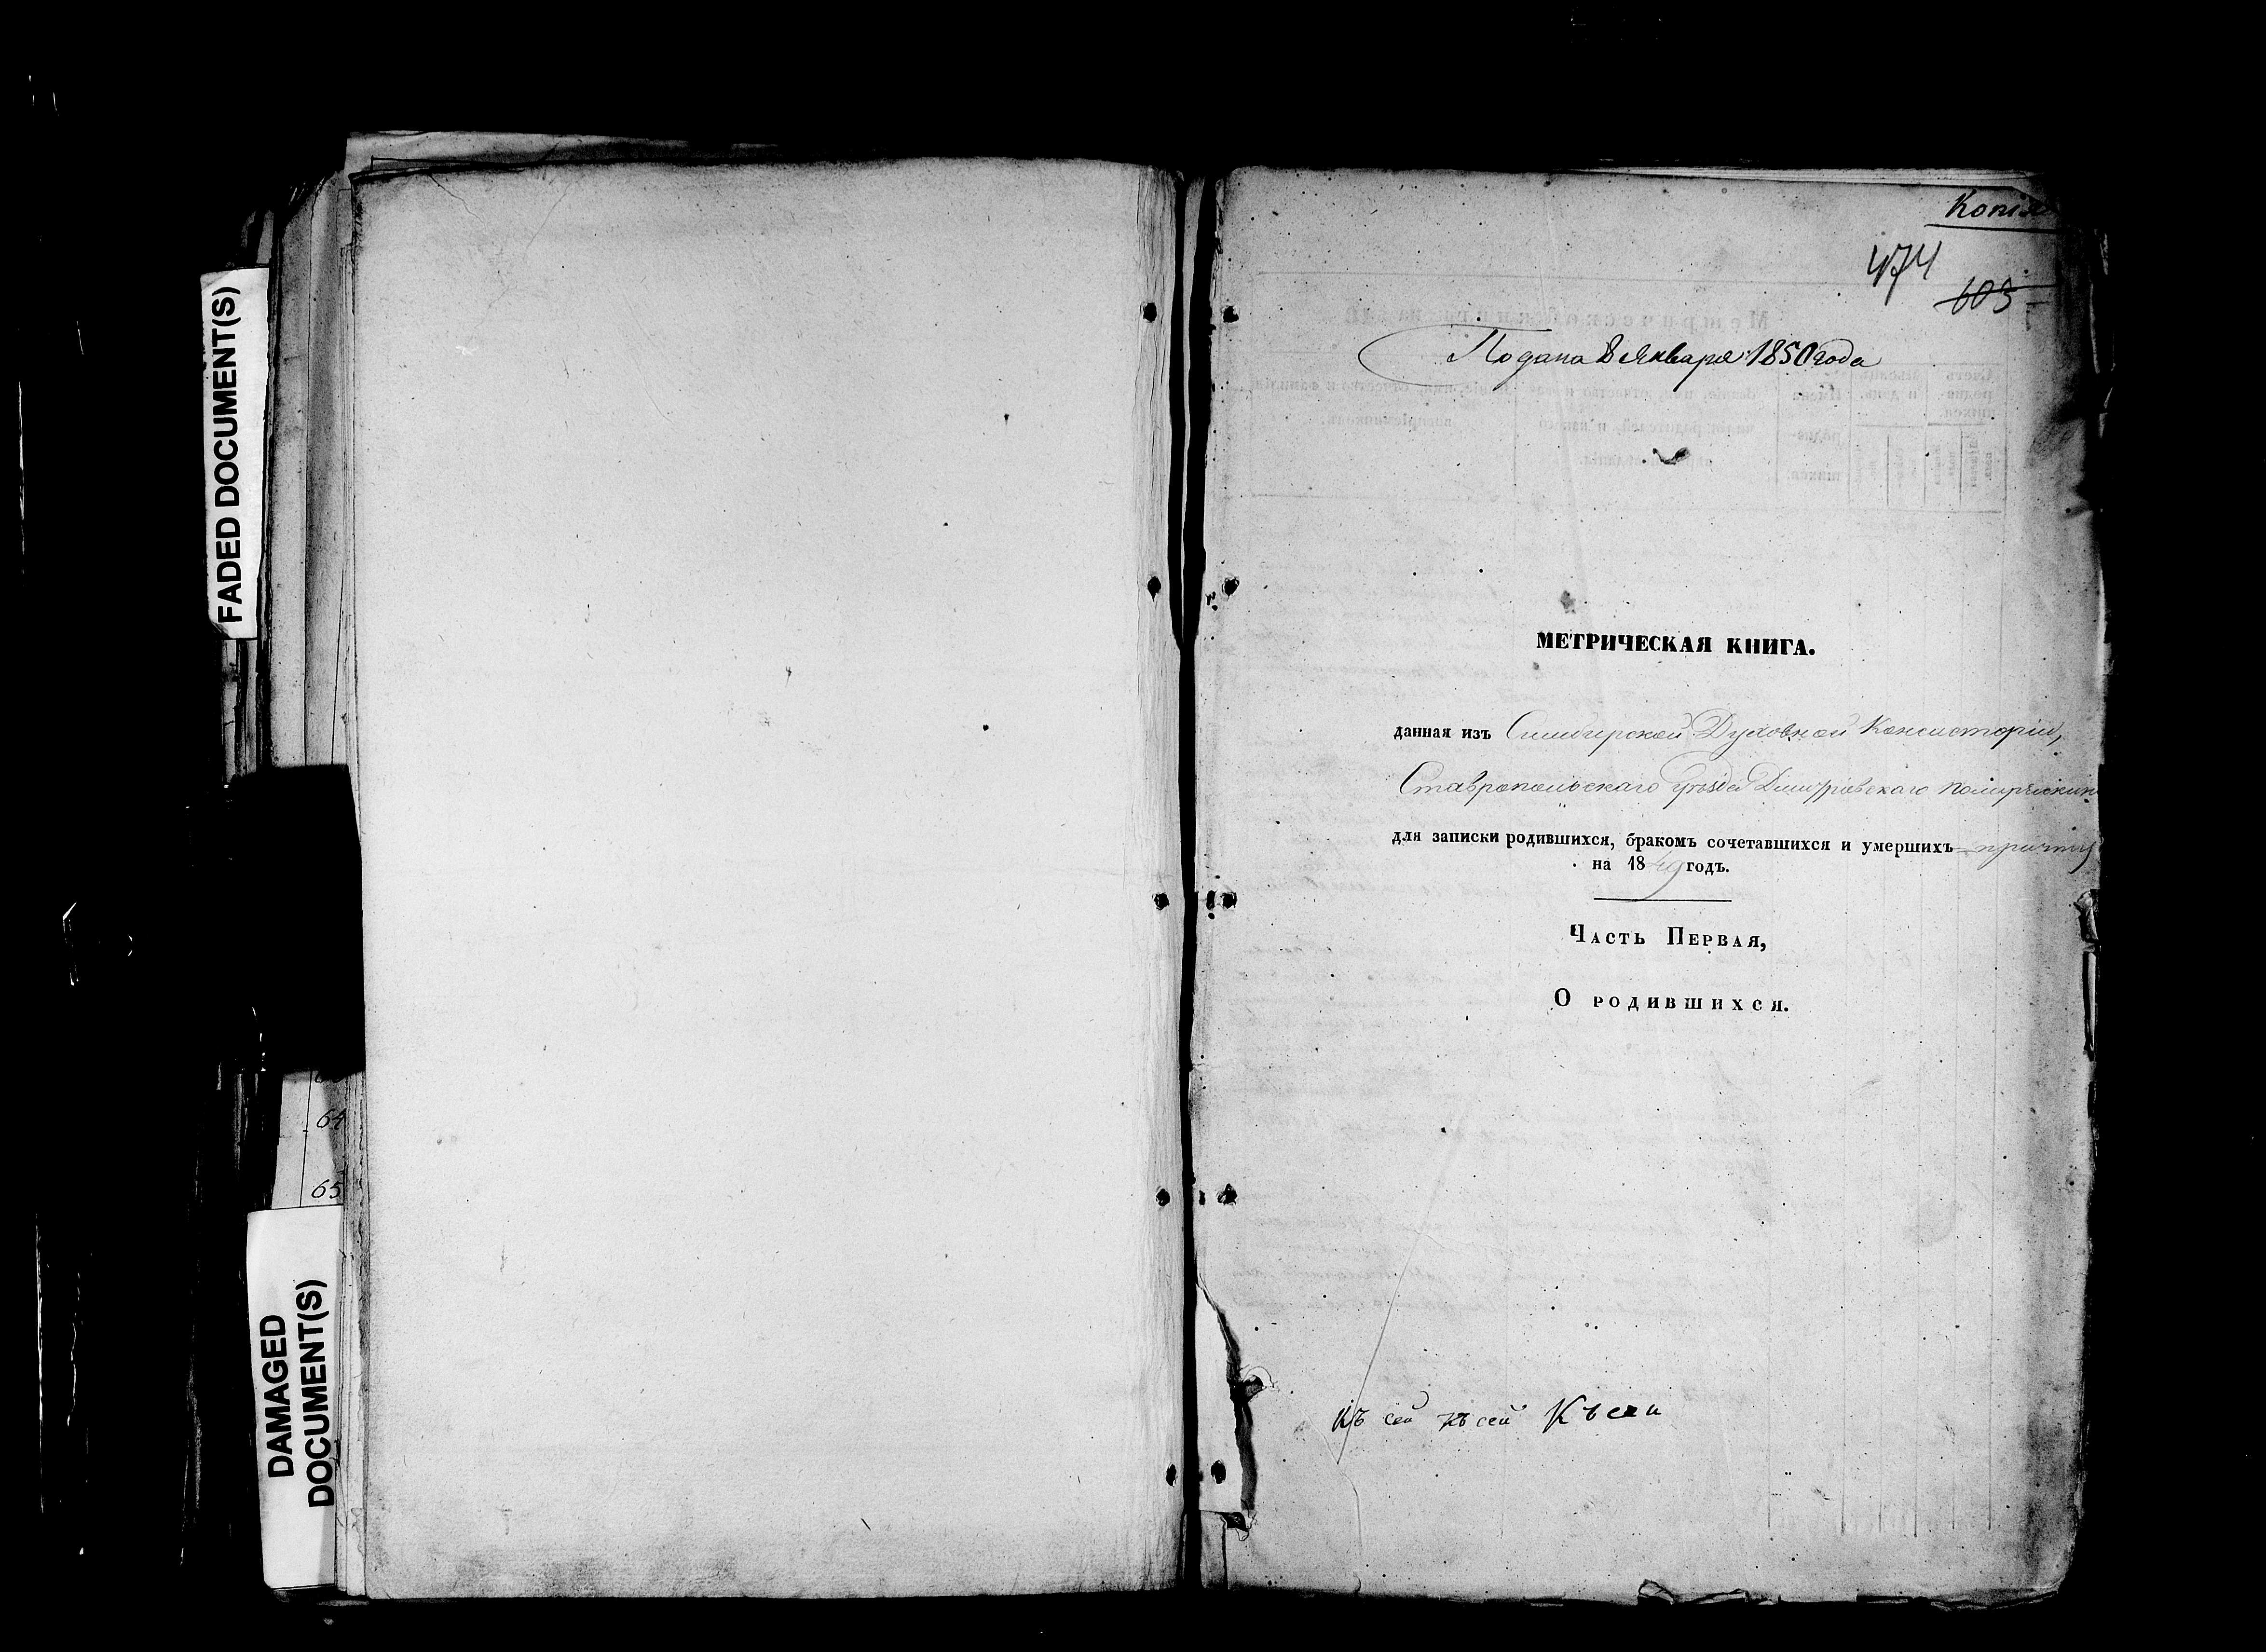 FADED DOCUMENT(S)
64
65
DAMAGED
DOCUMENT(S)
Копія
474
603
Подана 8 Января 1850 года
МЕТРИЧЕСКАЯ КНИГА.
данная изъ Симбирской Духовной Консисторіи,
Ставропольскаго Уѣзда Димитровскаго
для записки родившихся, бракомъ сочетавшихся и умершихъ причту
на 1849 годъ.
Часть Первая,
О родившихся.
Къ сей къ сей Къ сей